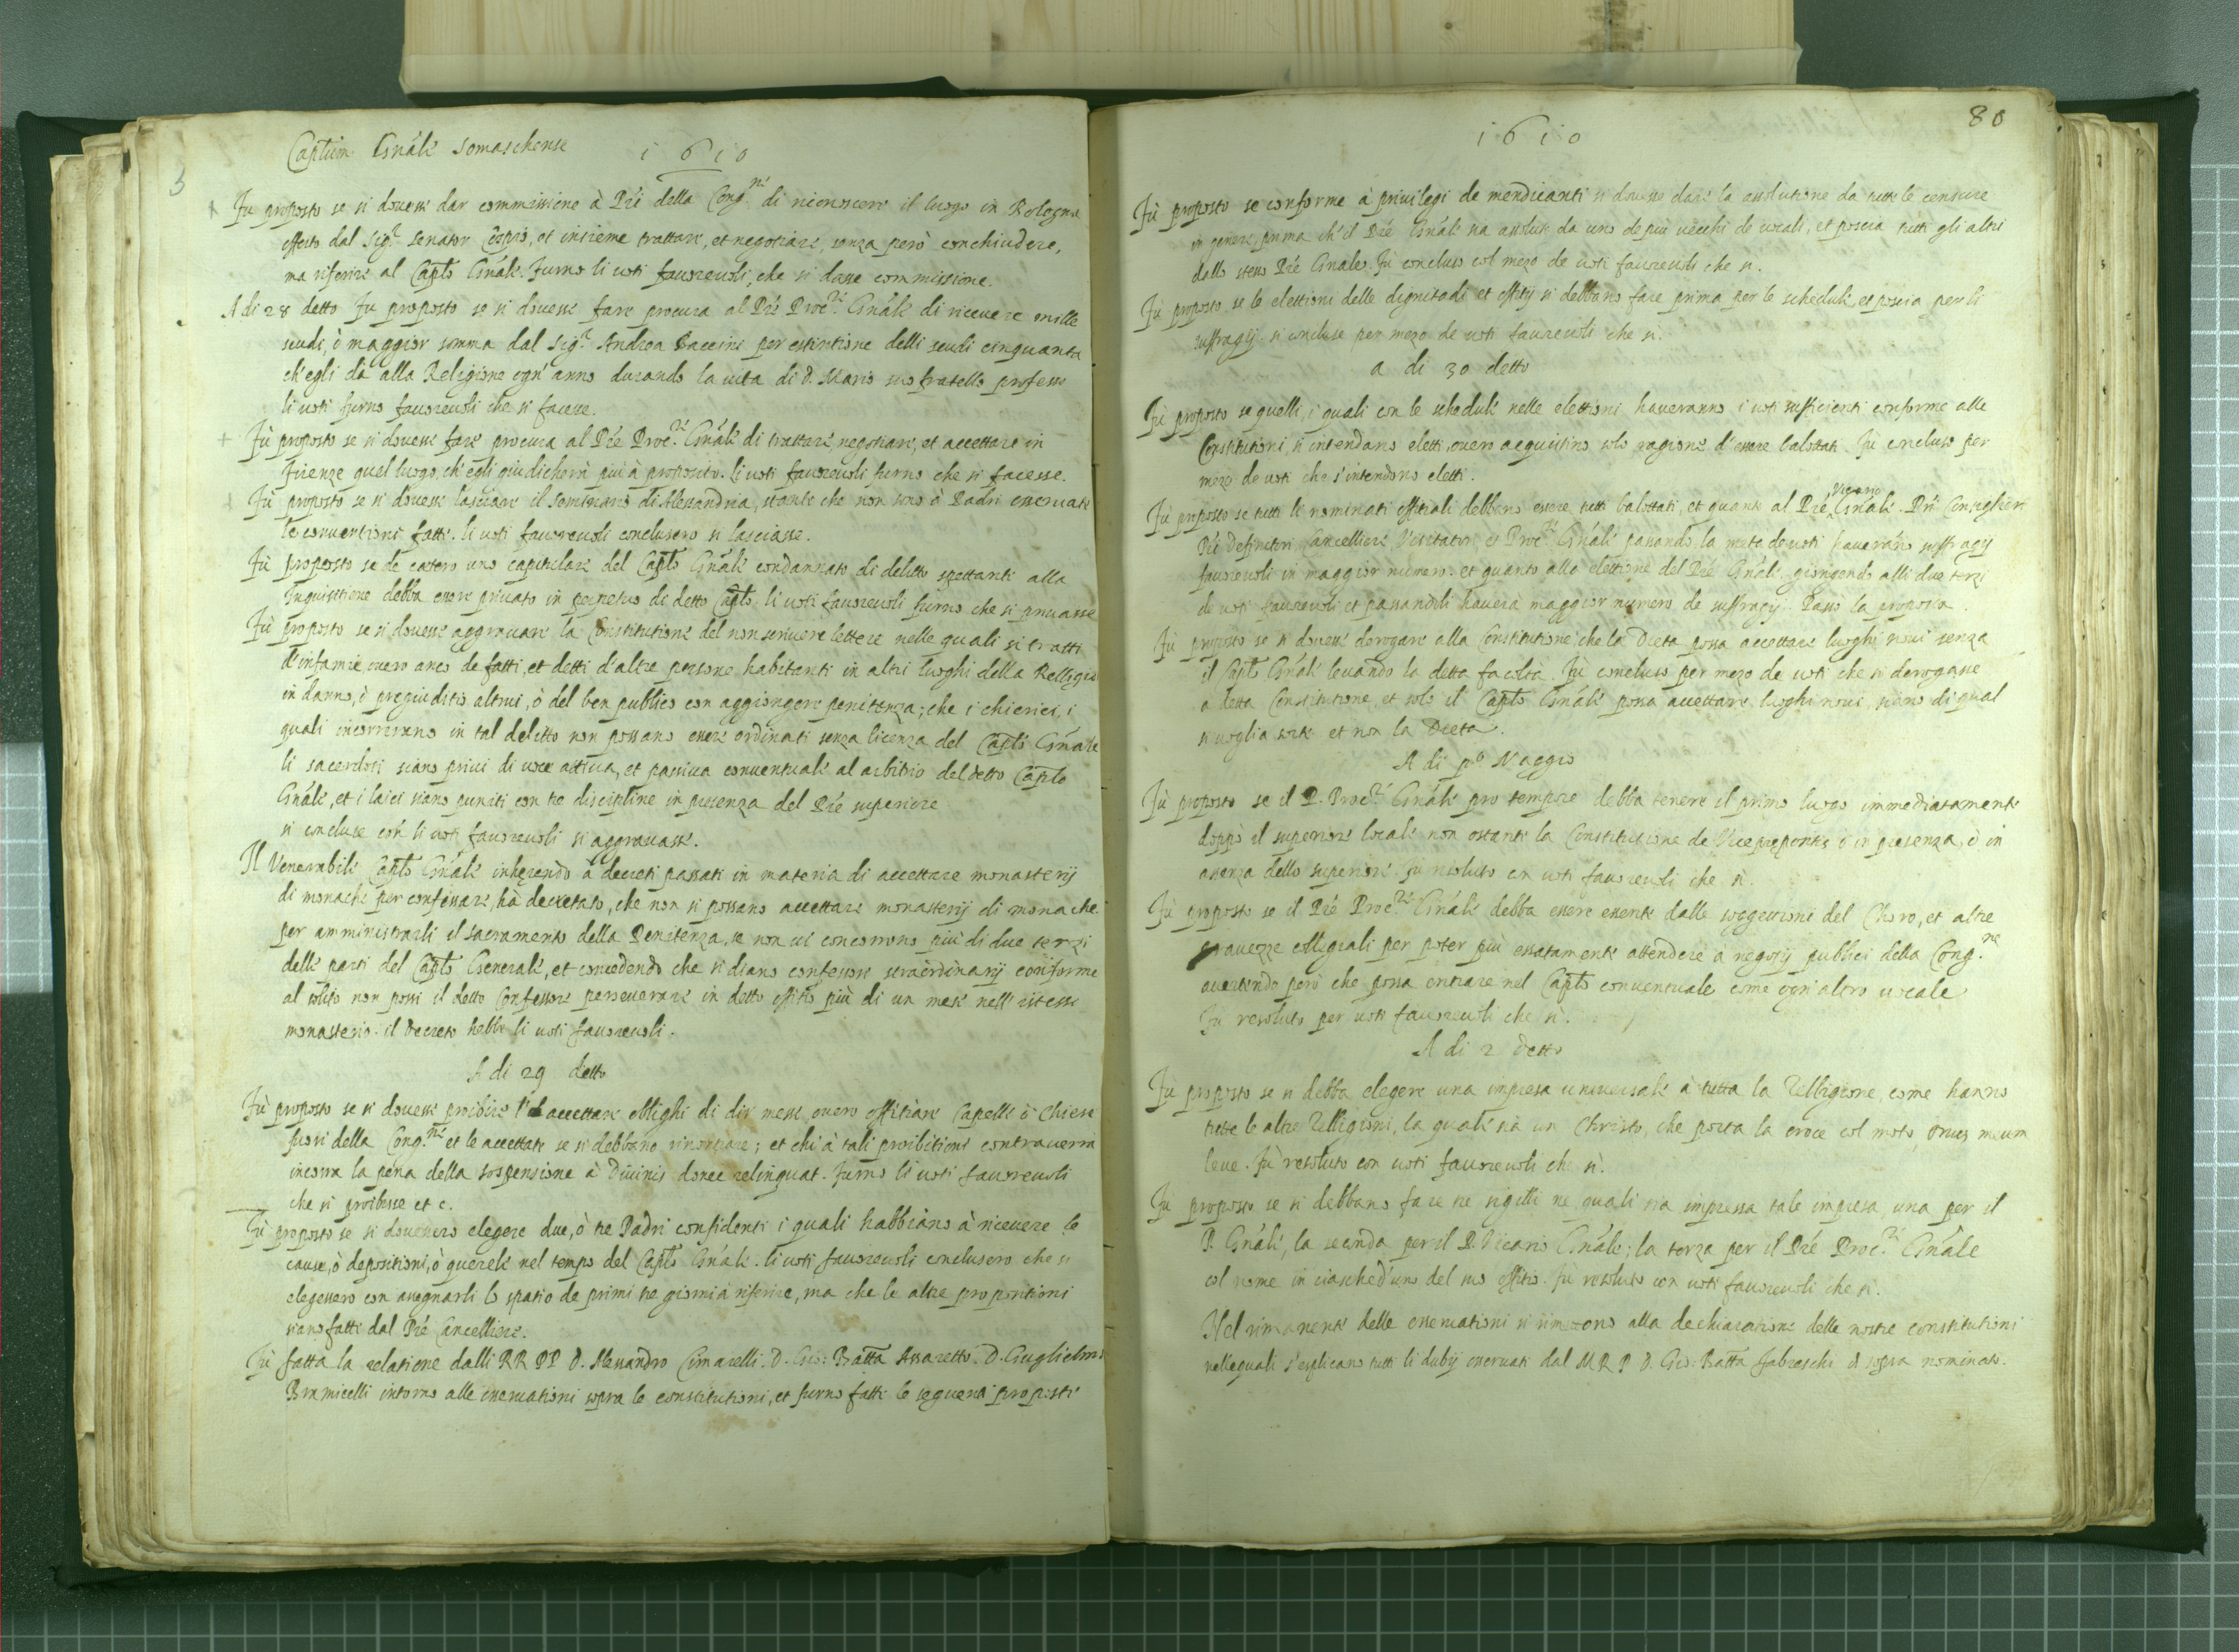 Captlum Gnãle Somaschense 1610
3
Fu proposto se si dovesse dar commissione à Pri della Cong.ne di riconoscere il luogo in Bologna
offerto dal Sig.r Senator Cospio, et insieme trattare, et negotiare, senza però conchiudere,
ma riferire al Capłlo Gnãle. Furno li voti favorevoli, che si dasse commissione.
A di 28 detto Fu proposto se si dovesse fare procura al Pre Proc.re Gnãle di ricevere mille
scudi, ò maggior somma dal Sig.r Andrea Baccini per estintione delli scudi cinquanta
ch'egli dà alla Religione ogn'anno durando la vita di D. Mario suo fratello professo
li voti furno favorevoli che si facesse.
+ Fù proposto se si dovesse fare procura al Pre Proc.re Gnãle di trattare, negotiare, et accettare in
Firenze quel luogo, ch'egli giudicherà più à proposito. li voti favorevoli furno che si facesse.
Fù proposto se si dovesse lasciare il Seminario di Alessandria, stante che non sono à Padri osservate
le conventioni fatte. li voti favorevoli conclusero si lasciasse.
Fù proposto se de cætero uno capitulare del Capłlo Gnãle condannato di delitto spettante alla
Inquisitione debba essere privato in perpetuo di detto Capłlo. li voti favorevoli furno che si privasse
Fù proposto se si dovesse aggravare la Constitutione del non scrivere lettere nelle quali si tratti
d'infamie, overo anco de fatti, et detti d'altre persone habitanti in altri luoghi della Relligio
in danno, ò pregiuditio altrui, ò del ben publico con aggiongere penitenza; che i chierici, i
quali incorreranno in tal delitto non possano essere ordinati senza licenza del Capłlo Gnãle
li sacerdoti siano privi di voce attiva, et passiva conventuale al arbitrio del detto Capłlo
Gnãle, et i laici siano puniti con tre discipline in presenza del Pre superiore
si concluse con li voti favorevoli si aggravasse.
Il Venerabile Capłlo Gnãle inherendo à decreti passati in materia di accettare monasterij
di monache per confessare, hà decretato, che non si possano accettare monasterij di monache
per amministrarli il sacramento della Penitenza, se non vi concorrono più di due terzi
delle parti del Capłlo Generale, et concedendo che si diano confessori straordinarij conforme
al solito non possi il detto Confessore perseverare in detto offitio più di un mese nell'istesso
monasterio. il Decreto hebbe li voti favorevoli.
A di 29 detto
Fù proposto se si dovesse proibire l'accettare oblighi di dir messe, overo offitiare Capelle ò Chiese
fuori della Cong.ne et le accettate se si debbano rinontiare; et chi à tali proibitioni contraverrà
incorra la pena della sospensione à Divinis donec relinquat. Furno li voti favorevoli
che si proibisse et c.
Fù proposto se si dovessero elegere due, ò tre Padri confidenti i quali habbiano à ricevere le
cause, ò depositioni, ò querele nel tempo del Capłlo Gnãle. li voti favorevoli conclusero che si
elegessero con assegnarli lo spatio de primi tre giorni à riferire, ma che le altre propositioni
siano fatti dal Pre Cancelliere.
Fù fatta la relatione dalli RR PP D. Alessandro Cimarelli. D. Gio: Batta Assaretto. D. Guglielmo
Bramicelli intorno alle osservationi sopra le constitutioni, et furno fatte le seguenti proposte
80
1610
Fù proposto se conforme à privilegi de mendicanti si dovesse dare la assolutione da tutte le censure
in genere, prima ch'il Pre Gnãle sia assoluto da uno de più vecchi de vocali, et poscia tutti gli altri
dallo stesso Pre Gnãle. Fù concluso col mezo de voti favorevoli che si.
Fù proposto se le elettioni delle dignitadi et offitij si debbano fare prima per le schedule, et poscia per li
suffragij. si concluse per mezo de voti favorevoli che si.
a di 30 detto
Fù proposto se quelli, i quali con le schedule nelle elettioni haveranno i voti sufficienti conforme alle
Constitutioni, si intendano eletti, overo acquistino solo ragione d'essere balottati. Fù concluso per
mezo de voti che s'intendono eletti.
Fù proposto se tutti li nominati offitiali debbano essere tutti balottati, et quanto al Pre Vicario Gnãle. Pri Consiglieri
Pri Definitori Cancelliere Visitatori, et Proc.re Gnãle passando la metà de voti haverãno suffragij
favorevoli in maggior numero. et quanto alla elettione del Pre Gnãle, giongendo alli due terzi
de voti favorevoli et passandoli haverà maggior numero de suffragij. Passò la proposta.
Fù proposto se si dovesse derogare alla Constitutione che la Dieta possa accettare luoghi novi senza
il Capłlo Gnãle levando la detta facoltà. Fù concluso per mezo de voti che si derogasse
a detta Constitutione, et solo il Capłlo Gnãle possa accettare luoghi novi, siano di qual
si voglia sorte et non la Dieta.
A di p.o Maggio
Fù proposto se il P. Proc.re Gnãle pro tempore debba tenere il primo luogo immediatamente
doppò il superiore locale non ostante la Constitutione de Vicepreposti, ò in presenza, ò in
assenza dello superiore. fù risoluto con voti favorevoli che si.
Fù proposto se il Pre Proc.re Gnãle debba essere essente dalle soggettioni del Choro, et altre
gravezze collegiali per poter più essatamente attendere à negotij publici della Cong.ne
avertendo però che possa entrare nel Capłlo conventuale come ogn'altro vocale
Fù resoluto per voti favorevoli che si.
A di 2 detto
Fù proposto se si debba elegere una impresa universale à tutta la Relligione, come hanno
tutte le altre Relligioni, la quale sia un Christo, che porta la croce col moto, Onus meum
leve. Fù resoluto con voti favorevoli che si.
Fù proposto se si debbano fare tre sigilli ne quali sia impressa tale impresa, una per il
P. Gnãle, la seconda per il P. Vicario Gnãle; la terza per il Pre Proc.re Gnãle
col nome in ciasched'uno del suo offitio. fù resoluto con voti favorevoli che si.
Nel rimanente delle osservationi si rimetono alla dechiaratione delle nostre constitutioni
nelle quali s'esplicano tutti li dubij osservati dal M R P D. Gio: Batta Fabreschi di sopra nominato.